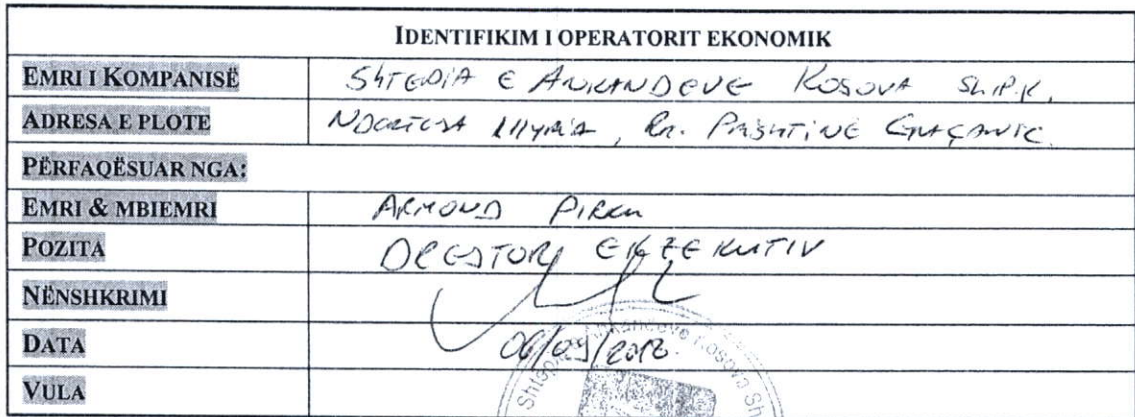 IDENTIFIKIM I OPERATORIT EKONOMIK
EMRI I KOMPANISË SHTËPIA E ANKANDEVE KOSOVA SH.P.K.
ADRESA E PLOTE NDËRTESA ILLYRIA, RR. PRISHTINË GRAÇANIC
PËRFAQËSUAR NGA:
EMRI & MBIEMRI ARMOND PIRKU
POZITA DREJTOR EKZEKUTIV
NËNSHKRIMI
DATA 06/09/2018.
VULA
Ankandeve Kosova Sh